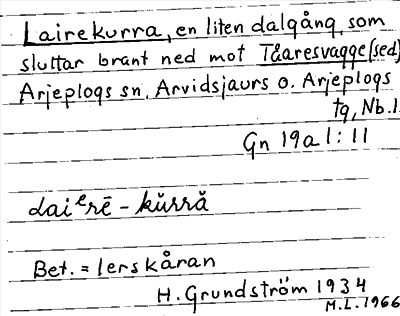 Lairekurra, en liten dalgång, som
sluttar brant ned mot Tåaresvagge (sed)
Arjeplogs sn, Arvidsjaurs o. Arjeplogs
tg, Nb.l.
Gn 19a1:11
laiᵉrē-kŭrră
Bet. = lerskåran
H. Grundström 1934
M.L. 1966